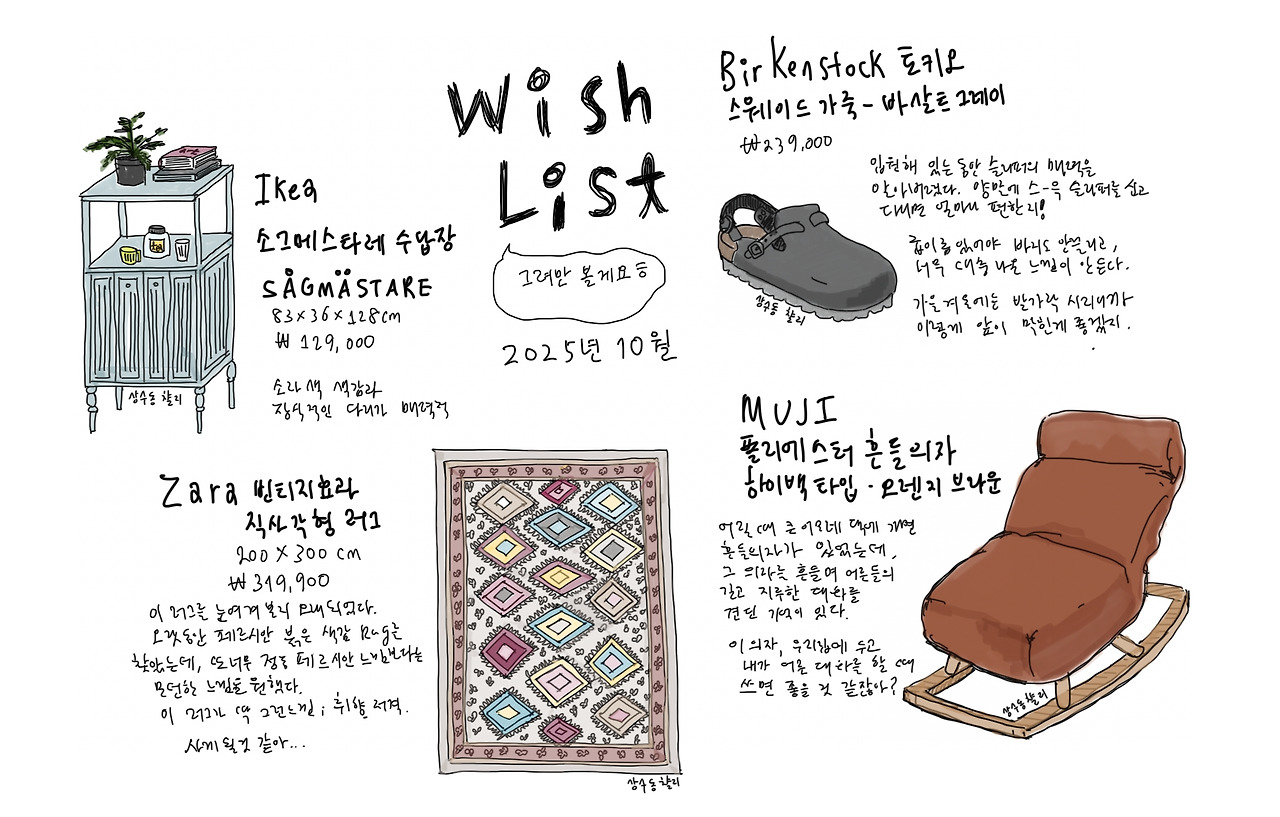 Wish
List
그려만 볼게요ㅎ
2025년 10월
Ikea
소그메스타레 수납장
SÅGMÄSTARE
83×36×128cm
₩ 129,000
소라색 색감과
장식적인 다리가 매력적
상수동 찰리
Birkenstock 토키오
스웨이드 가죽 - 바살트 그레이
₩239,000
입원해 있는 동안 슬리퍼의 매력을
알아버렸다. 양말에 스-윽 슬리퍼를 신고
다니면 얼마나 편한지!
굽이 좀 있어야 바지도 안끌리고,
너무 대충 나온 느낌이 안든다.
가을겨울에는 발가락 시리니까
이렇게 앞이 막힌게 좋겠지.
상수동 찰리
Zara 빈티지효과
직사각형 러그
200 X 300 cm
₩ 319,900
이 러그를 눈여겨 보니 오래되었다.
오랫동안 페르시안 붉은 색감 Rug를
찾았는데, 또 너무 정통 페르시안 느낌보다는
모던한 느낌을 원했다.
이 러그가 딱 그런느낌; 취향 저격.
사게 될것 같아...
상수동 찰리
MUJI
폴리에스터 흔들의자
하이백 타입 · 오렌지 브라운
어릴 때 큰이모네 댁에 가면
흔들의자가 있었는데,
그 의자를 흔들며 어른들의
길고 지루한 대화를
견딘 기억이 있다.
이 의자, 우리집에 두고
내가 어른 대화를 할 때
쓰면 좋을 것 같잖아?
상수동 찰리